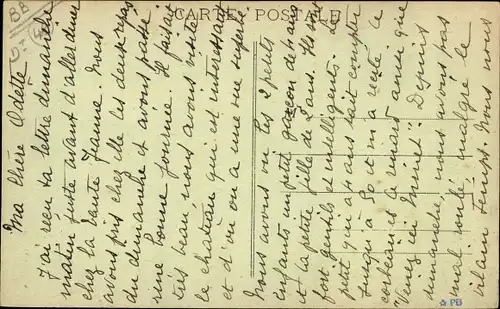 CARTE POSTALE
Ma chère Odette
J'ai reçu ta lettre dimanche
matin juste avant d'aller dîner
chez la tante Jeanne. Nous
avons pris chez elle les deux repas
du dimanche et avons passé
une bonne journée. Il faisait
très beau nous avons visité
le château qui est intéressant
et d'où on a une vue superbe
Nous avons vu les 2 petits
enfants un petit garçon de 4 ans
et la petite fille de 2 ans. Ils sont
fort gentils et intelligents. Le
petit qui a 4 ans sait compter
jusqu'à 50 et m'a récité Le
corbeau et le renard ainsi que
"Venez ici Minet". Depuis
dimanche, nous n'avons pas
mal roulé malgré le
vilain temps. Nous nous
PB